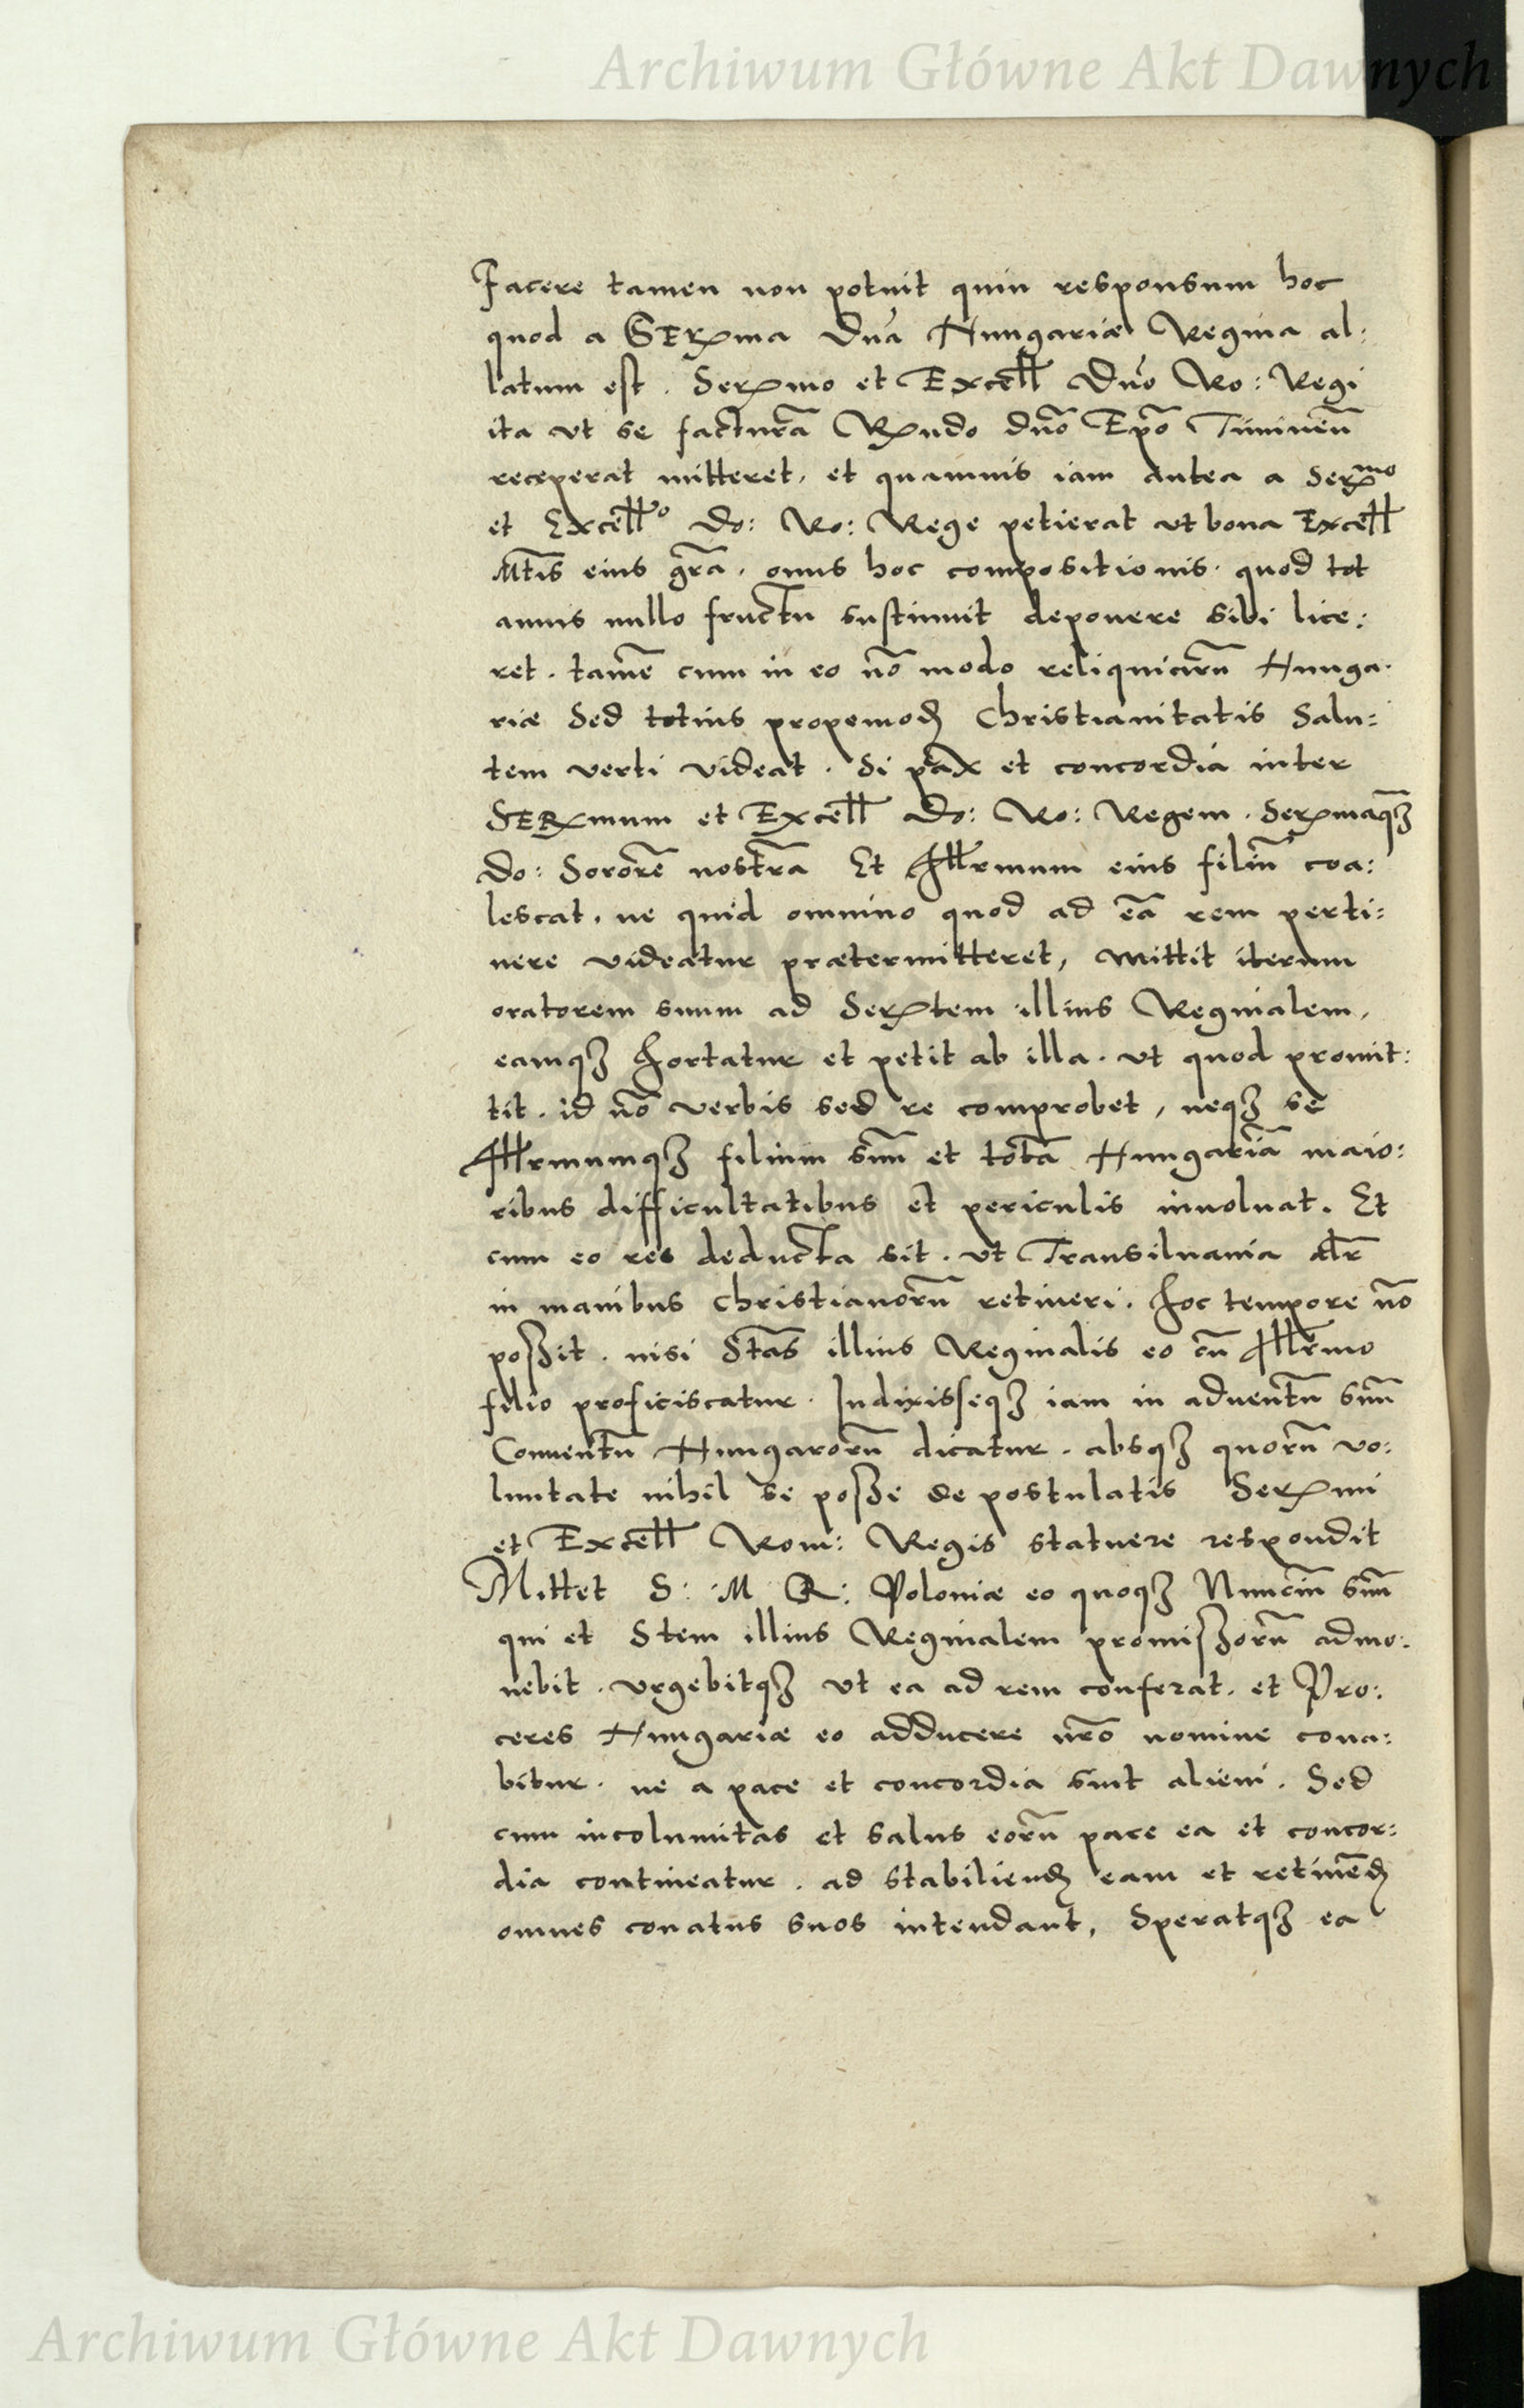 Archiwum Główne Akt Dawnych
Facere tamen non potuit quin responsum hoc
quod a SERma Dna Hungariæ Regina al:
latum est. Sermo et Excell Dno Ro: Regi
ita ut se facturā Rndo dno Epo Tininēn
receperat mitteret, et quamuis iam antea a Sermo
et Excello Do: Ro: Rege petierat ut bona Excell
Mtis eius gra. onus hoc compositionis. quod tot
annis nullo fructu sustinuit deponere sibi lice:
ret. tamē cum in eo nō modo reliquiarū Hunga.
riæ Sed totius propemod Christianitatis Salu:
tem verti videat. Si pax et concordia inter
SERmum et Excell Do: Ro: Regem. Sermaqꝫ
Do: Sororē nostrā Et Illrmum eius filiū coa:
lescat. ne quid omnino quod ad eā rem perti:
nere videatur prætermitteret, mittit iterum
oratorem suum ad Sertem illius Reginalem,
eamqꝫ hortatur et petit ab illa. ut quod promit:
tit. id nō verbis sed re comprobet, neqꝫ se
Illrmumqꝫ filium suū et totā Hungariā maio:
ribus difficultatibus et periculis inuoluat. Et
cum eo res deducta sit. ut Transiluania alr
in manibus christianorū retineri. hoc tempore nō
possit. nisi Stas illius Reginalis eo cū Illrmo
filio proficiscatur. Indixisseqꝫ iam in aduentū suū
Conuentū Hungarorū dicatur. absqꝫ quorū vo:
luntate nihil se posse de postulatis Sermi
et Excell Rom: Regis statuere respondit
Mittet S: M R: Poloniæ eo quoqꝫ Nunciū suū
qui et Stem illius Reginalem promissorū admo:
nebit. urgebitqꝫ ut ea ad rem conferat. et Pro:
ceres Hungariæ eo adducere nrō nomine cona:
bitur. ne a pace et concordia sint alieni. Sed
cum incolumitas et salus eorū pace ea et concor:
dia contineatur. ad stabiliend eam et retinēd
omnes conatus suos intendant, Speratqꝫ ea
Archiwum Główne Akt Dawnych